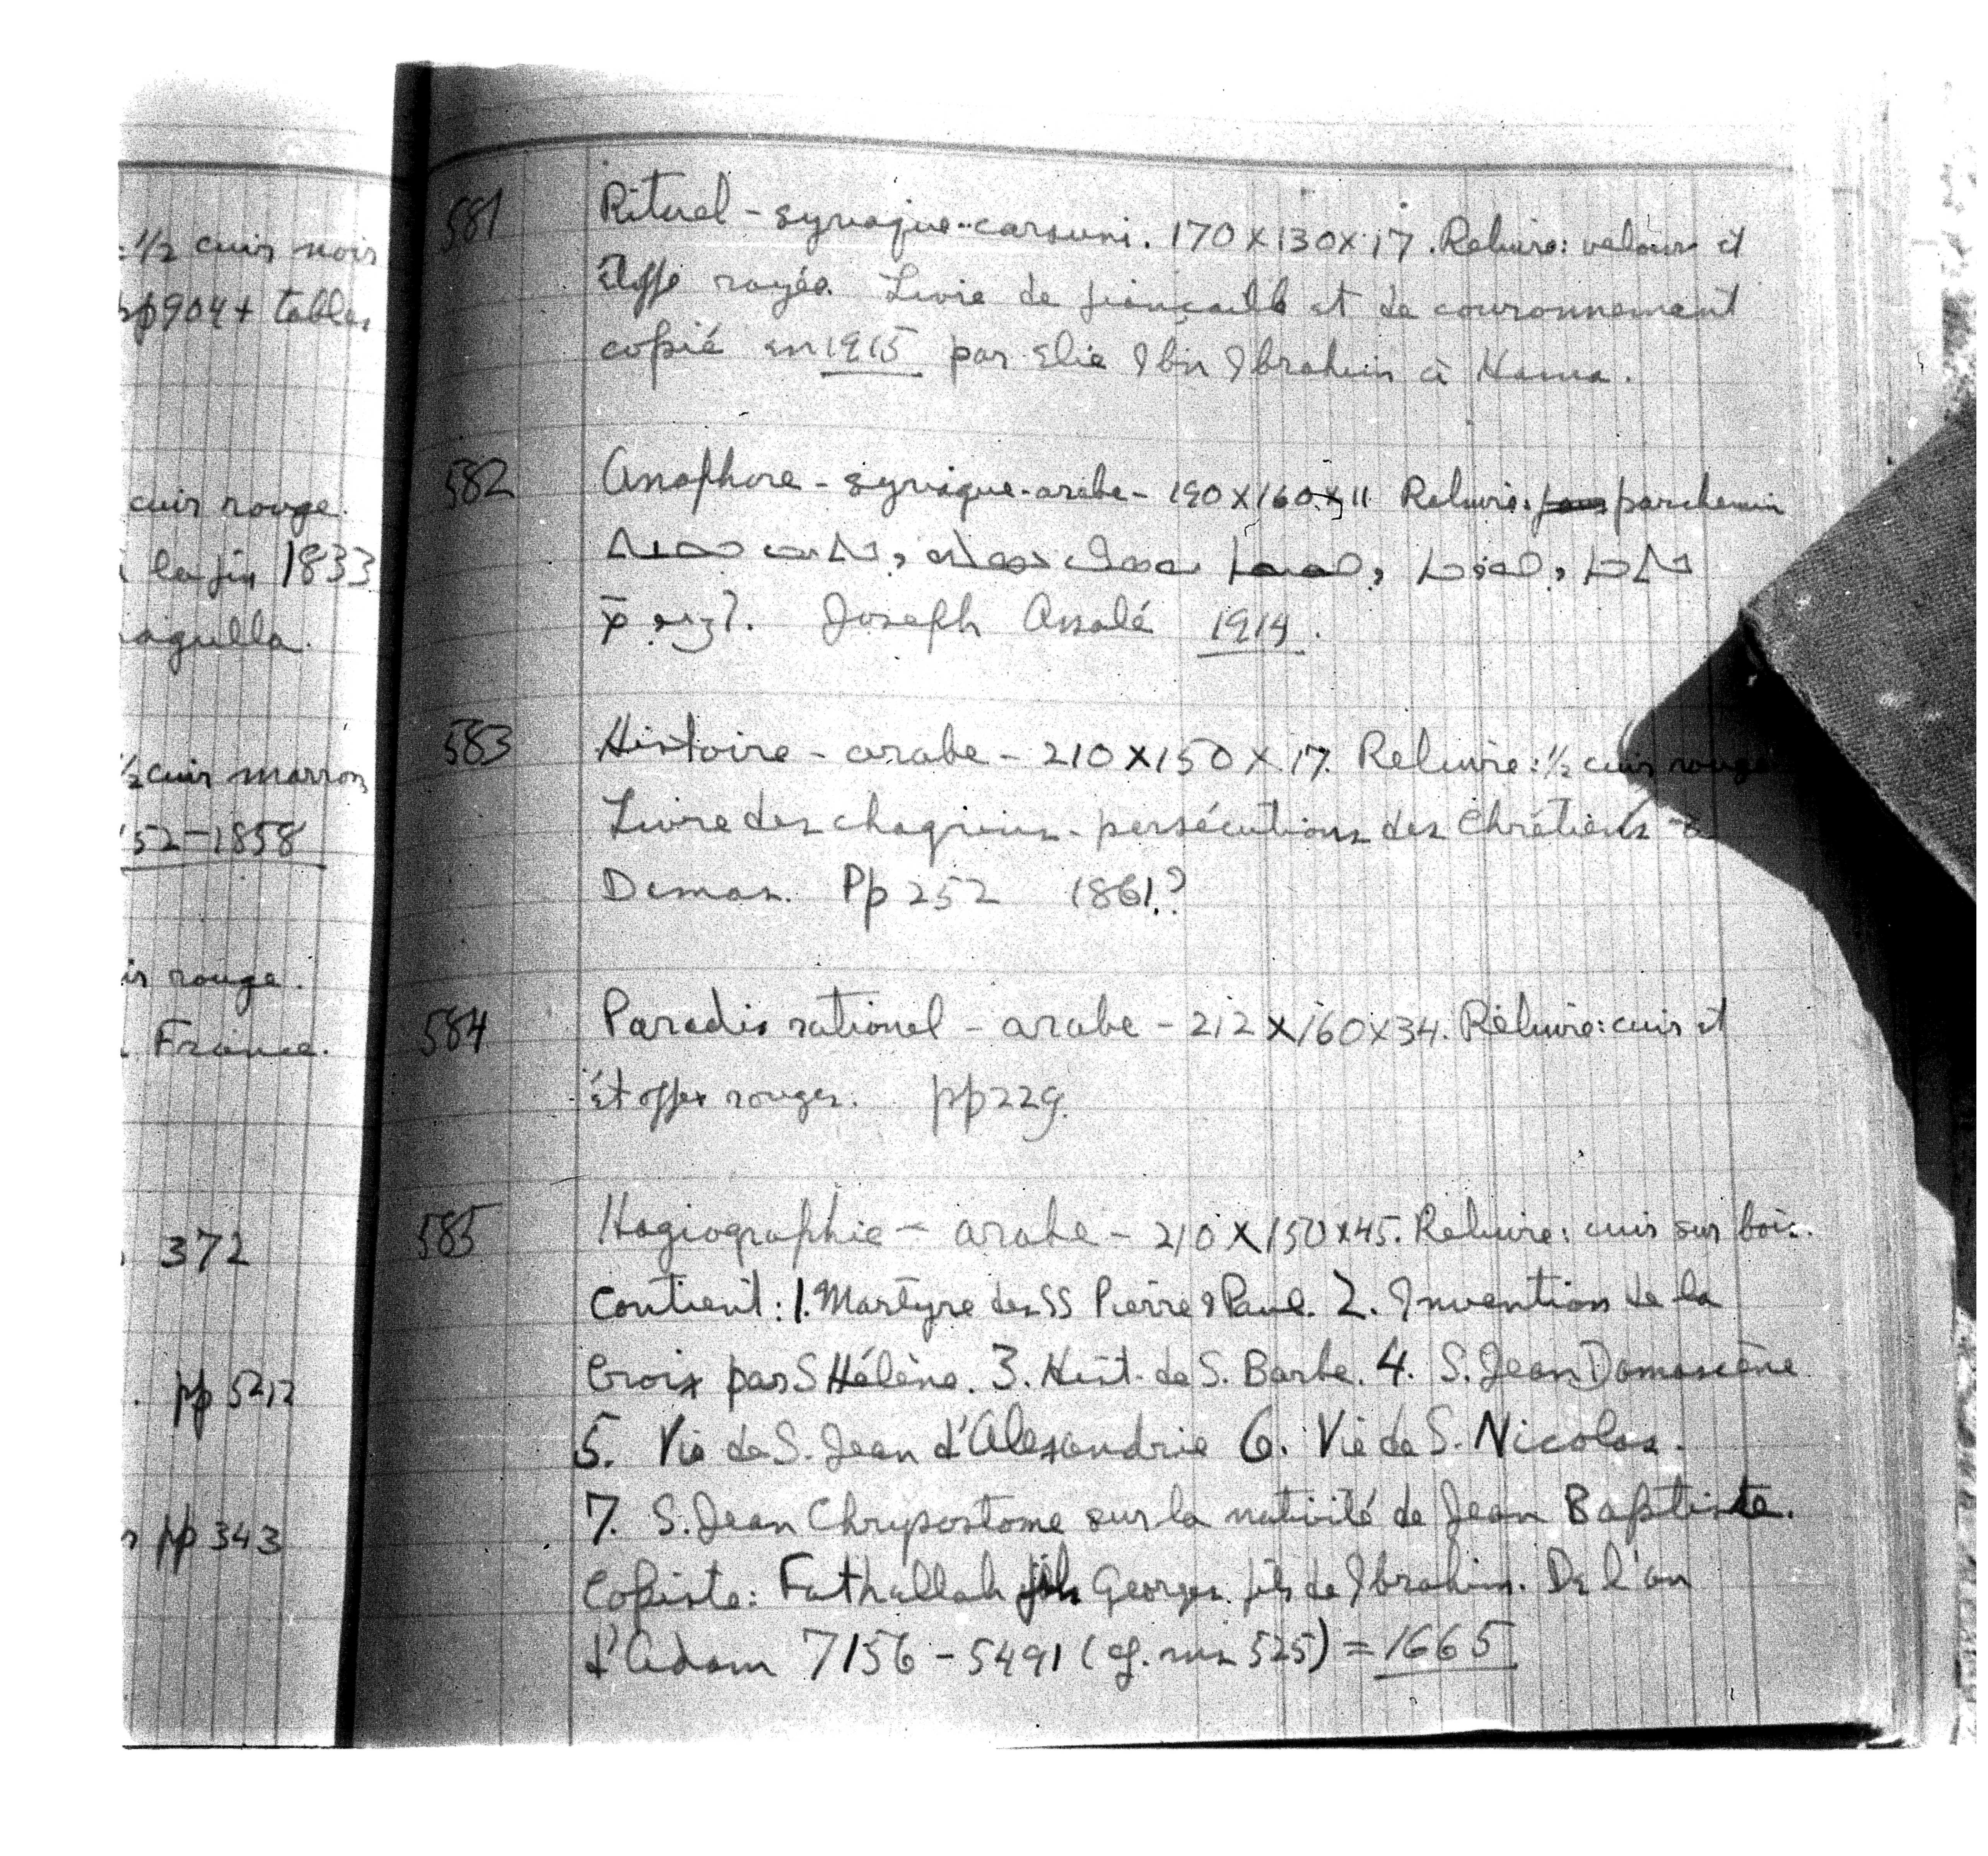 1/2 cuir noir
pp 904 + tables
cuir rouge.
la fin 1833
1/2 cuir marron
52-1858
rouge.
France.
372
pp 522
pp 343
581 Rituel - syriaque-carsuni. 170 x 130 x 17. Reliure: velours et
étoffe rayée. Livre de fiançaille et de couronnement
copié en 1915 par Elie Ibn Ibrahim à Hama.
582 Anaphore - syriaque-arabe - 190 x 160 x 11 Reliure: parchemin
Joseph Assalé 1914.
583 Histoire - arabe - 210 x 150 x 17. Reliure: 1/2 cuir rouge
Livre des chagrins - persécutions des Chrétiens à
Damas. Pp 252 1861.?
584 Paradis rationel - arabe - 212 x 160 x 34. Reliure: cuir et
étoffes rouges. pp 229.
585 Hagiographie - arabe - 210 x 150 x 45. Reliure: cuir sur bois.
Contient: 1. Martyre des SS Pierre & Paul. 2. Invention de la
Croix par S Hélène. 3. Hist. de S. Barbe. 4. S. Jean Damascène
5. Vie de S. Jean d'Alexandrie 6. Vie de S. Nicolas.
7. S. Jean Chrysostome sur la nativité de Jean Baptiste.
Copiste: Fathallah fils Georges fils de Ibrahim. De l'an
d'Adam 7156 - 5491 (cf. ms 525) = 1665